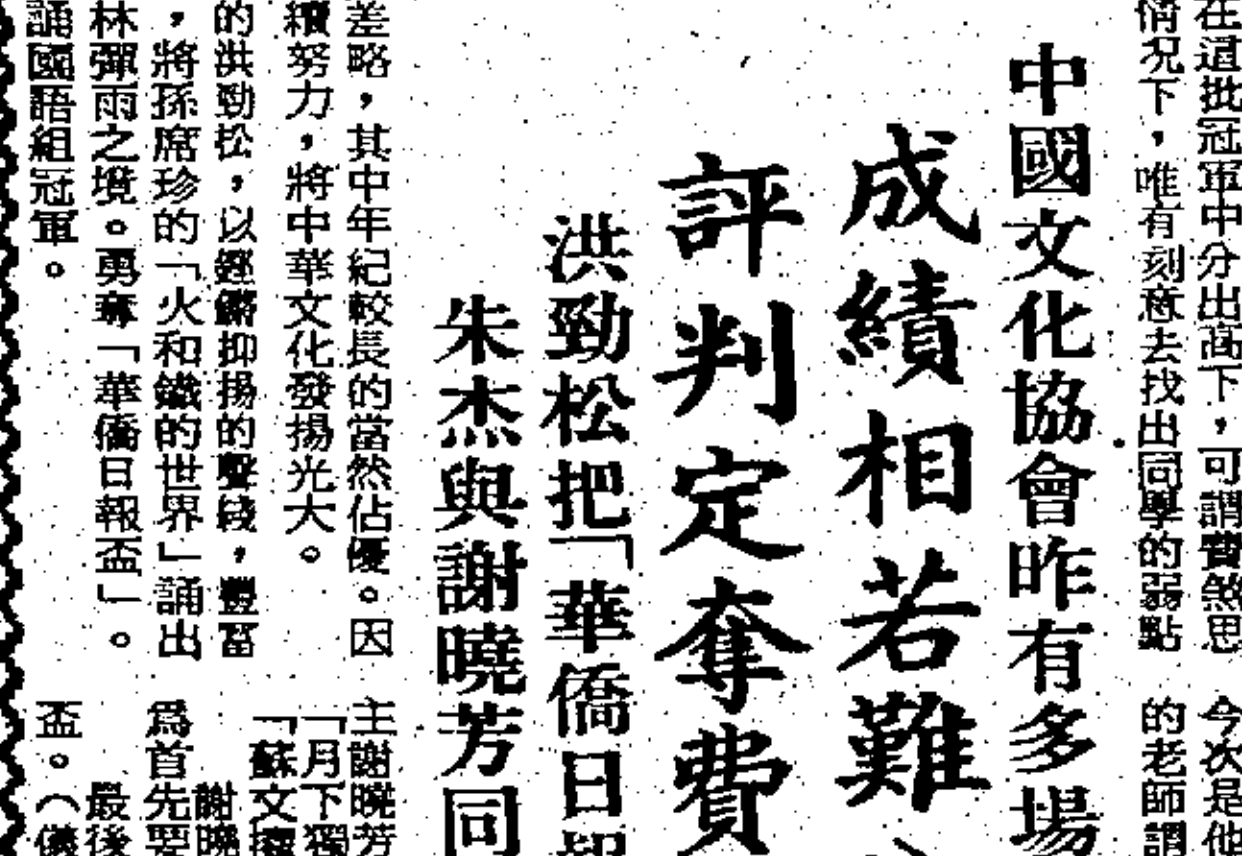 在這批冠軍中分出高下，可謂費煞思
情况下，唯有刻意去找出同學的弱點
今次是他
的老師謂
中國文化協會昨有多場
成績相若難
評判定奪費
洪勁松把「華僑日報
朱杰與謝曉芳同
差略，其中年紀較長的當然佔優。因
續努力，將中華文化發揚光大。
的洪勁松，以鏗鏘抑揚的聲綫，豐富
，將孫席珍的「火和鐵的世界」誦出
林彈雨之境。勇奪「華僑日報盃」。
誦國語組冠軍。
主謝曉芳
「月下獨
「蘇文擅
謝曉
爲首先要
最後
盃。（儀